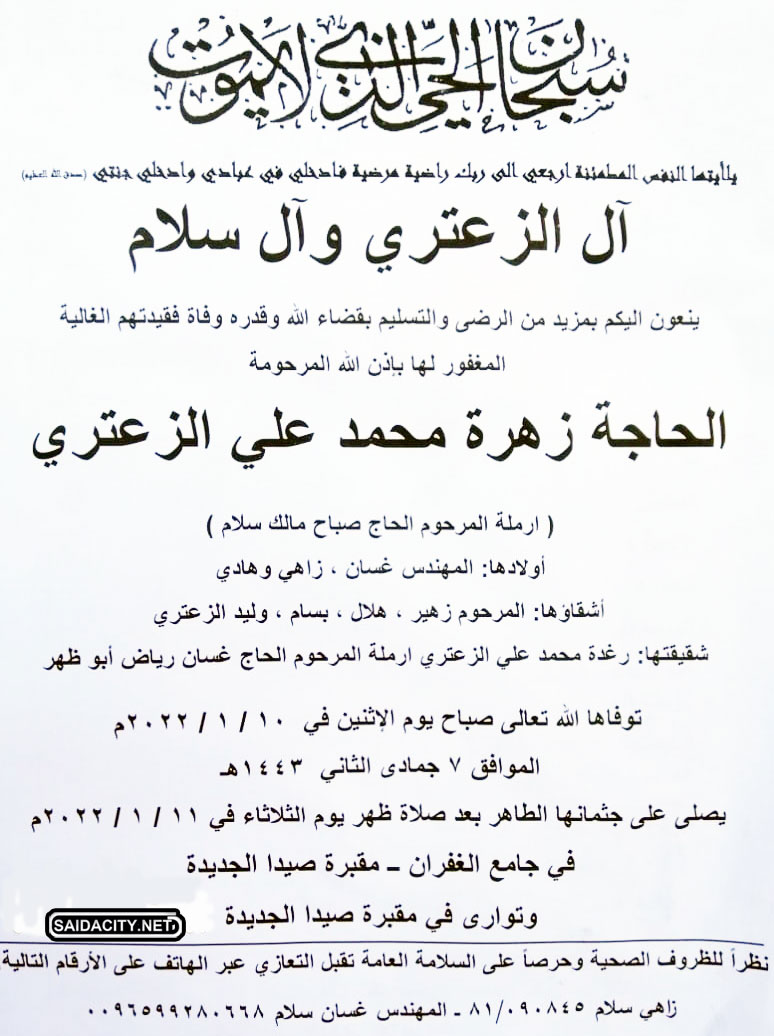 سبحان الحي الذي لا يموت
ياأيتها النفس المطمئنة ارجعي الى ربك راضية مرضية فادخلي في عبادي وادخلي جنتي (صدق الله العظيم)
آل الزعتري وآل سلام
ينعون اليكم بمزيد من الرضى والتسليم بقضاء الله وقدره وفاة فقيدتهم الغالية
المغفور لها بإذن الله المرحومة
الحاجة زهرة محمد علي الزعتري
( ارملة المرحوم الحاج صباح مالك سلام )
أولادها: المهندس غسان ، زاهي وهادي
أشقاؤها: المرحوم زهير ، هلال ، بسام ، وليد الزعتري
شقيقتها: رغدة محمد علي الزعتري ارملة المرحوم الحاج غسان رياض أبو ظهر
توفاها الله تعالى صباح يوم الإثنين في ١٠ / ١ / ٢٠٢٢م
الموافق ٧ جمادى الثاني ١٤٤٣هـ
يصلى على جثمانها الطاهر بعد صلاة ظهر يوم الثلاثاء في ١١ / ١ / ٢٠٢٢م
في جامع الغفران – مقبرة صيدا الجديدة
وتوارى في مقبرة صيدا الجديدة
SAIDACITY.NET
نظراً للظروف الصحية وحرصاً على السلامة العامة تقبل التعازي عبر الهاتف على الأرقام التالية:
زاهي سلام ٨١/٠٩٠٨٤٥ - المهندس غسان سلام ٠٠٩٦٥٩٩٢٨٠٦٦٨